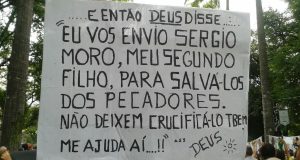 .....E ENTÃO DEUS DISSE....:....
"EU VOS ENVIO SERGIO
MORO, MEU SEGUNDO
FILHO, PARA SALVÁ-LOS
DOS PECADORES.
NÃO DEIXEM CRUCIFICÁ-LO TBEM,
ME AJUDA AÍ....!!"...
DEUS